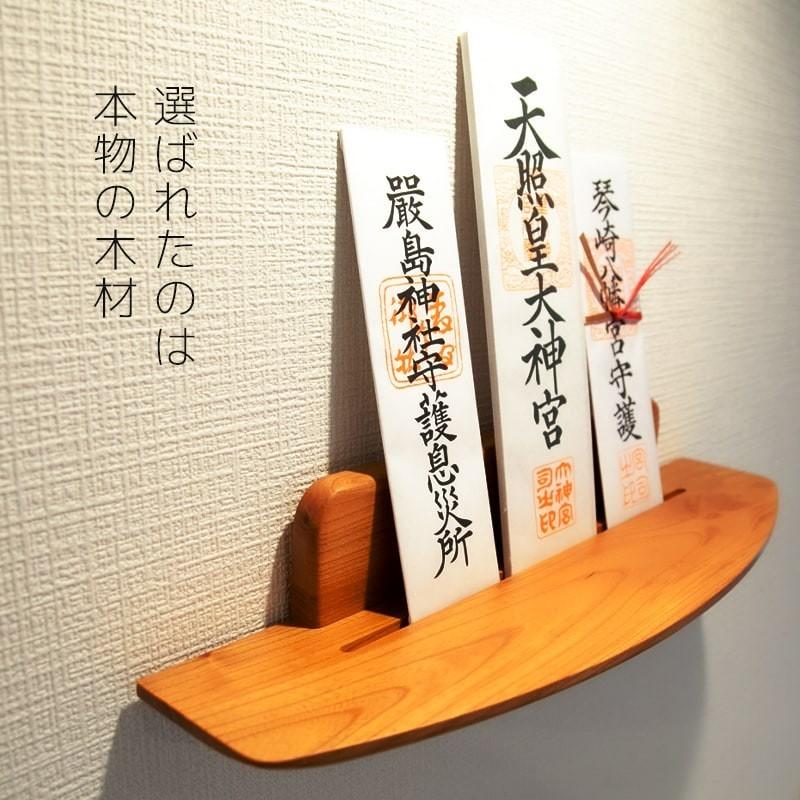 選ばれたのは
本物の木材
嚴島神社守護息災所
天照皇大神宮
琴崎八幡宮守護